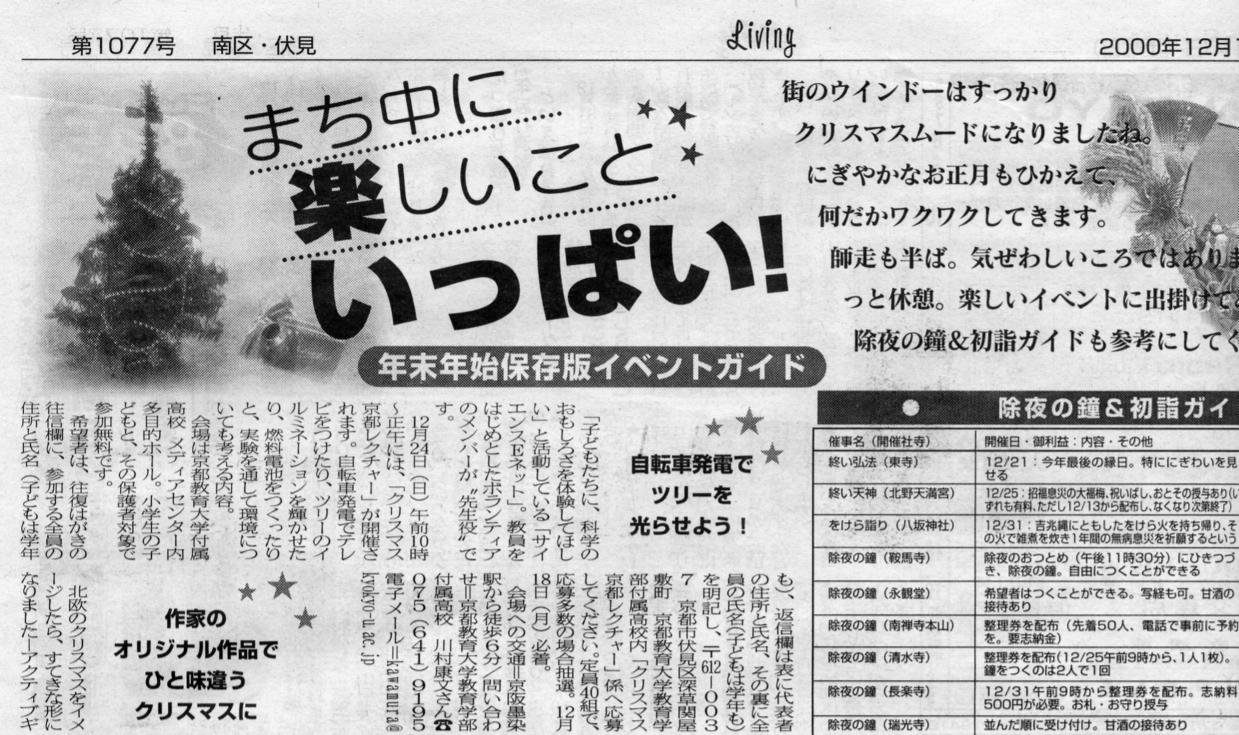 第1077号 南区・伏見
Living
2000年12月
まち中に
楽しいこと
いっぱい!
年末年始保存版イベントガイド
街のウインドーはすっかり
クリスマスムードになりましたね。
にぎやかなお正月もひかえて、
何だかワクワクしてきます。
師走も半ば。気ぜわしいころではありま
っと休憩。楽しいイベントに出掛けて
除夜の鐘&初詣ガイドも参考にしてく
自転車発電で
ツリーを
光らせよう!
「子どもたちに、科学の
おもしろさを体験してほし
い」と活動している「サイ
エンスEネット」。教員を
はじめとしたボランティア
のメンバーが〝先生役〟で
す。
12月24日(日)午前10時
〜正午には、「クリスマス
京都レクチャー」が開催さ
れます。自転車発電でテレ
ビをつけたり、ツリーのイ
ルミネーションを輝かせた
り、燃料電池をつくったり
と、実験を通して環境につ
いても考える内容。
会場は京都教育大学付属
高校 メディアセンター内
多目的ホール。小学生の子
どもと、その保護者対象で
参加無料です。
希望者は、往復はがきの
往信欄に、参加する全員の
住所と氏名(子どもは学年
も)、返信欄は表に代表者
の住所と氏名、その裏に全
員の氏名(子どもは学年も)
を明記し、〒612―003
7 京都市伏見区深草関屋
敷町 京都教育大学教育学
部付属高校内「クリスマス
京都レクチャー」係へ応募
してください。定員40組で、
応募多数の場合抽選。12月
18日(月)必着。
会場への交通=京阪墨染
駅から徒歩6分/問い合わ
せ=京都教育大学教育学部
付属高校 川村康文さん☎
075(641)9195
電子メール=kawamura@
kyokyo-u.ac.jp
作家の
オリジナル作品で
ひと味違う
クリスマスに
北欧のクリスマスをイメ
ージしたら、すてきな形に
なりました―アクティブギ
除夜の鐘&初詣ガイ
催事名(開催社寺) 開催日・御利益:内容・その他
終い弘法(東寺) 12/21:今年最後の縁日。特ににぎわいを見
せる
終い天神(北野天満宮) 12/25:招福息災の大福梅、祝いばし、おとその授与あり(い
ずれも有料、ただし12/13から配布し、なくなり次第終了)
をけら詣り(八坂神社) 12/31:吉兆縄にともしたをけら火を持ち帰り、そ
の火で雑煮を炊き1年間の無病息災を祈願するという
除夜の鐘(鞍馬寺) 除夜のおつとめ(午後11時30分)にひきつづ
き、除夜の鐘。自由につくことができる
除夜の鐘(永観堂) 希望者はつくことができる。写経も可。甘酒の
接待あり
除夜の鐘(南禅寺本山) 整理券を配布(先着50人、電話で事前に予約
を。要志納金)
除夜の鐘(清水寺) 整理券を配布(12/25午前9時から、1人1枚)。
鐘をつくのは2人で1回
除夜の鐘(長楽寺) 12/31午前9時から整理券を配布。志納料
500円が必要。お札・お守り授与
除夜の鐘(瑞光寺) 並んだ順に受け付け。甘酒の接待あり